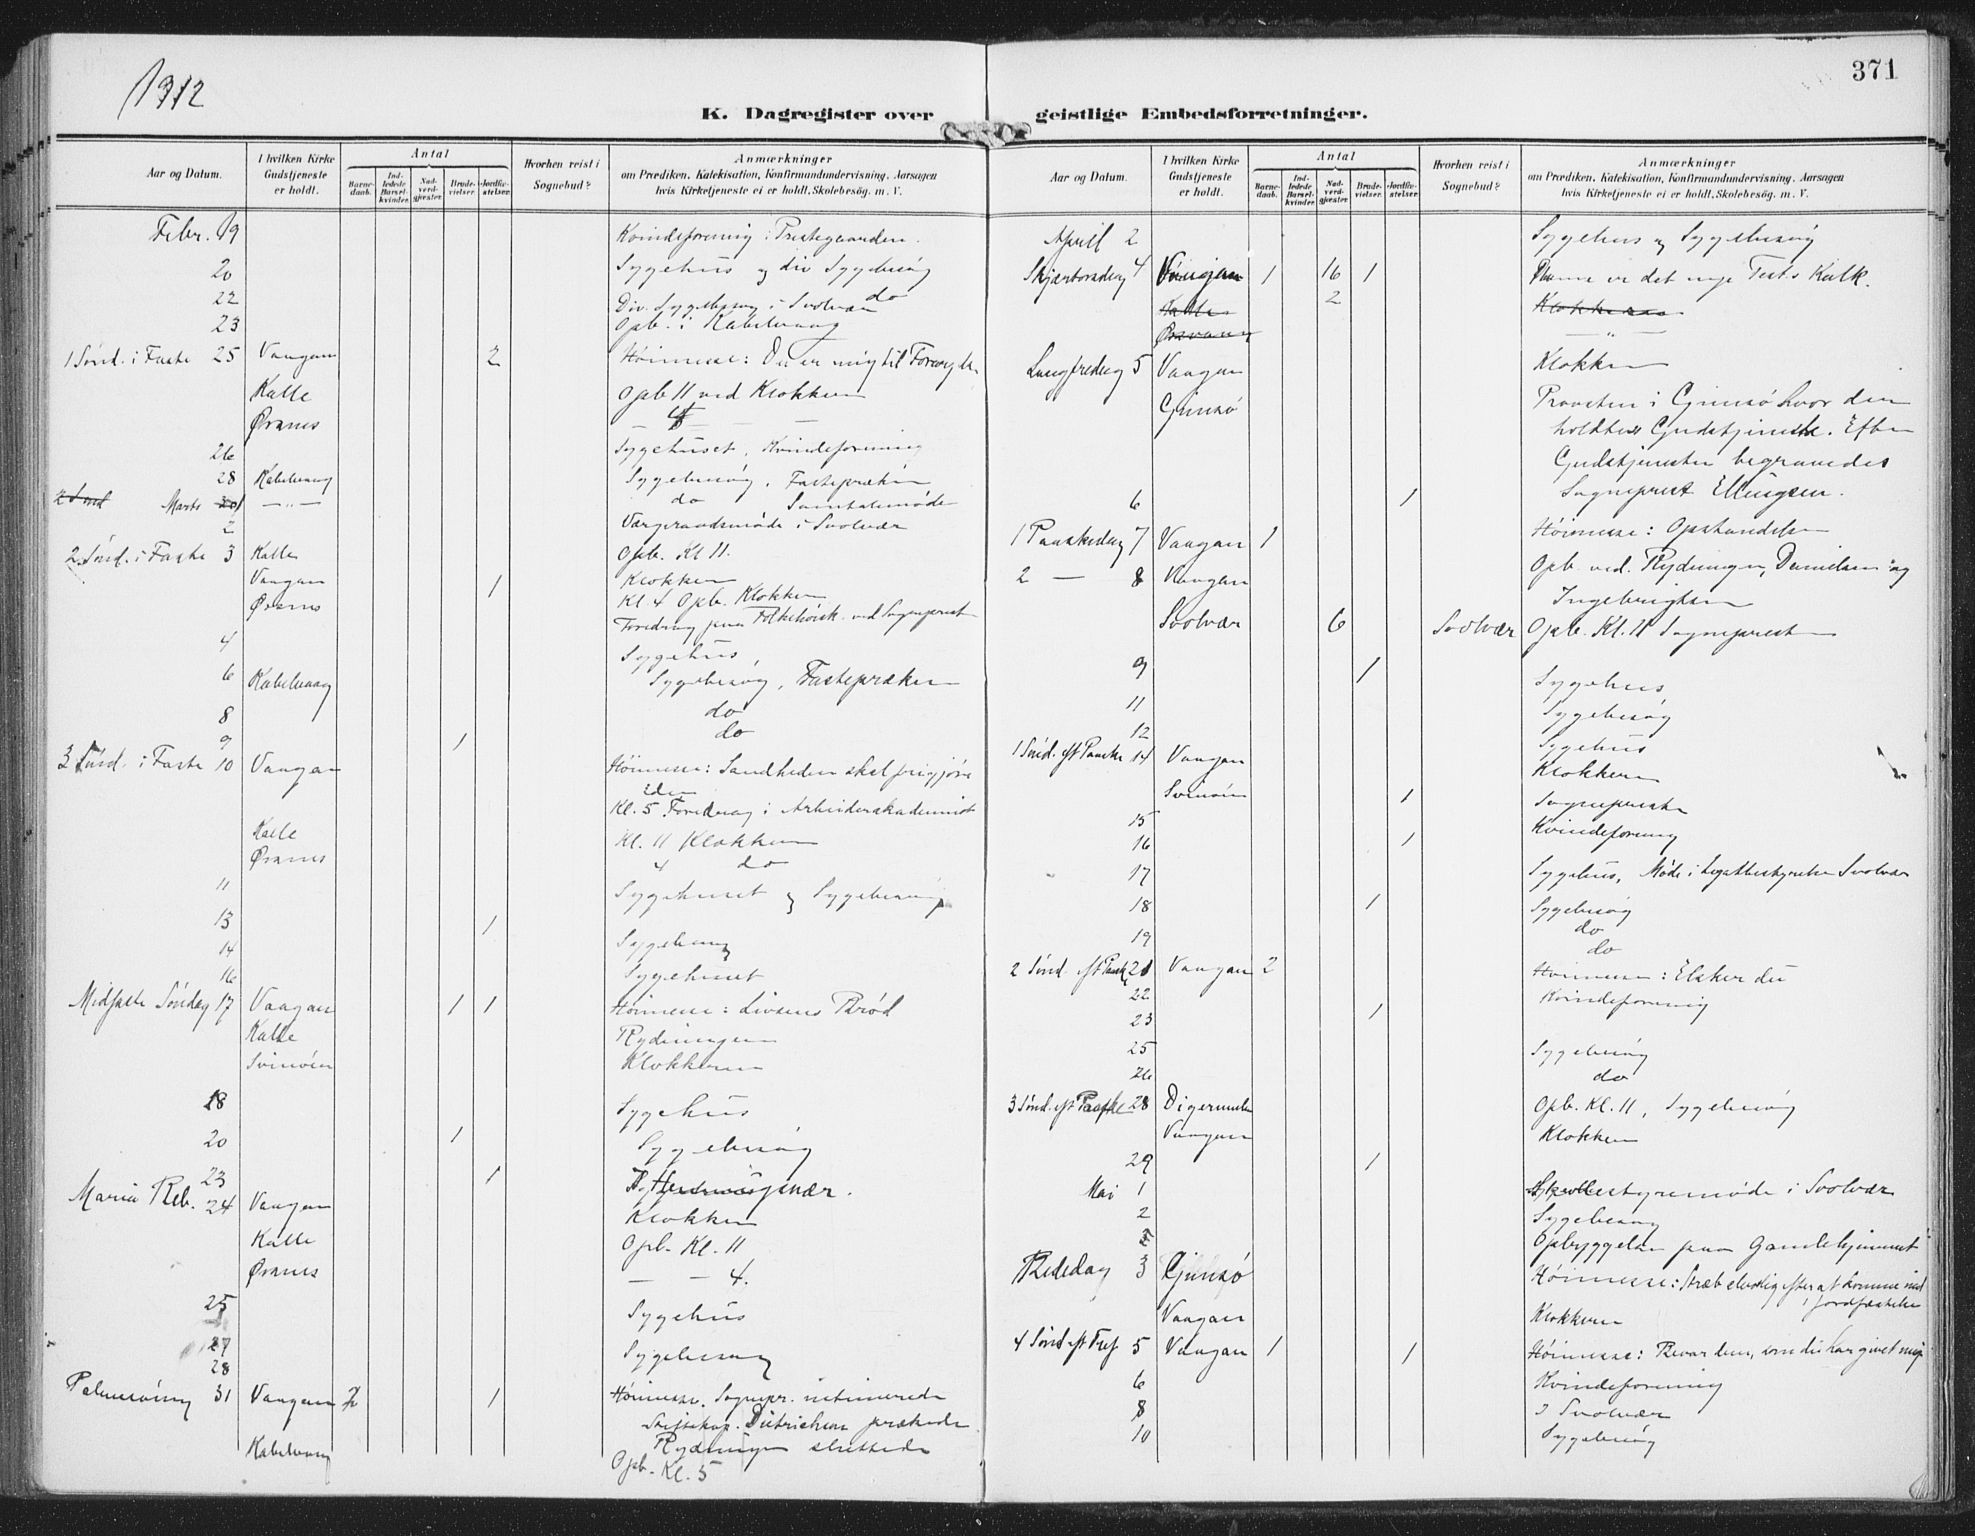 1912
371
K. Dagregister over geistlige Embedsforretninger.
Aar og Datum.
I hvilken Kirke Gudstjeneste er holdt.
Antal
Barnedaab.
Indledede Barselkvinder.
Nadverdgjæster.
Brudevielser.
Jordfæstelser.
Hvorhen reist i Sognebud?
Anmærkninger
om Prædiken, Katekisation, Konfirmandundervisning, Aarsagen
hvis Kirketjeneste ei er holdt, Skolebesøg. m. V.
Febr. 19 Kvindeforening i Prestegaarden.
20 Sygehus og div Sygebesøg
22 Div. Sygebesøg i Svolvær do
23 Opb. i Kabelvaag
1 Sønd. i Faste 25 Vaagan 2 Høimesse: Du er mig til
Kalle Opb 11 ved Klokkeren
Ørsnes 4
26 Sygehuset, Kvindeforening
28 Kabelvaag Sygebesøg, Fasteprækен
2 Sønd Marts 1 — " — do Samtalemøde
2 Værgeraadsmøde i Svolvær
2 Sønd. i Faste 3 Kalle Opb. Kl 11.
Vaagan 1 Klokkeren
Ørsnes Kl 4 Opb. Klokkeren
Foredrag paa Folkehøisk. ved Sogneprest
4 Sygehus
6 Kabelvaag Sygebesøg, Fastepræken
8 do
9 1 do
3 Sønd. i Faste 10 Vaagan Høimesse: Sandheden skal frigjøre
Eder
Kl. 5 Foredrag i Arbeiderakademiet
Kalle Kl. 11 Klokkeren
Ørsnes 4 do
11 Sygehuset og Sygebesøg
13 1
14 Sygebesøg
16 Sygehuset
Midfaste Søndag 17 Vaagan 1 1 Høimesse: Livsens Brød
Kalle Rydningen
Svinøen Klokkeren
18 Sygehus
20 1 Sygebesøg
23 1
Maria Beb. 24 Vaagan Klokkeren
Kalle Opb. Kl. 11
Ørsnes — — 4.
25 Sygehus
27 Sygebesøg
28
Palmesøndag 31 Vaagan 2 1 Høimesse. Sognepr. intimerede
Stiftskap. Dietrichson prækede
Rydningen sluttede
Kabelvaag Opb. Kl. 5
Aar og Datum.
I hvilken Kirke Gudstjeneste er holdt.
Antal
Barnedaab.
Indledede Barselkvinder.
Nadverdgjæster.
Brudevielser.
Jordfæstelser.
Hvorhen reist i Sognebud?
Anmærkninger
om Prædiken, Katekisation, Konfirmandundervisning, Aarsagen
hvis Kirketjeneste ei er holdt, Skolebesøg. m. V.
April 2 Sygehus og Sygebesøg
Skjærtorsdag 4 Vaagan 1 16 1 det nye Test.s Kalk.
Kalle 2 Klokkeren
Ørsvaag — " —
Langfredag 5 Vaagan Klokkeren
Gimsø Provsten i Gimsø hvor der
holdtes Gudstjeneste. Efter
Gudstjenesten begravedes
6 1 Sogneprest Ellingsen.
1 Paaskedag 7 Vaagan 1 Høimesse: Opstandelsen
2 — 8 Vaagan Opb. ved. Rydningen, Danielsen og
Ingebrigtsen
Svolvær 6 Svolvær Opb. Kl. 11 Sognepresten
9 1 Sygehus
11 Sygebesøg
12 Sygehus
1 Sønd. eft Paaske 14 Vaagan Klokkeren
Svinøen 1 Sognepresten
15 Kvindeforening
16 1
17 Sygehus, Møde i Legatbestyrelse Svolvær
18 1 Sygebesøg
19 do
do
2 Sønd. eft Paask 21 Vaagan 2 Høimesse: Elsker du
22 Kvindeforening
23 1
25 Sygebesøg
26 do
3 Sønd. eft Paaske 28 Digermulen Opb. Kl. 11, Sygebesøg
Vaagan Klokkeren
29 1
Mai 1 Skolestyremøde i Svolvær
2 Sygebesøg
2 Opbyggelse paa Gamlehjemmet
Bededag 3 Gimsø Høimesse: Stræb alvorlig efter at komme ind
Jordfæstelse
Vaagan Klokkeren
4 Sønd eft 5 Vaagan 1 1 Høimesse: Bevar dem, som du har givet mig
6 Kvindeforening
8 I Svolvær
10 Sygebesøg